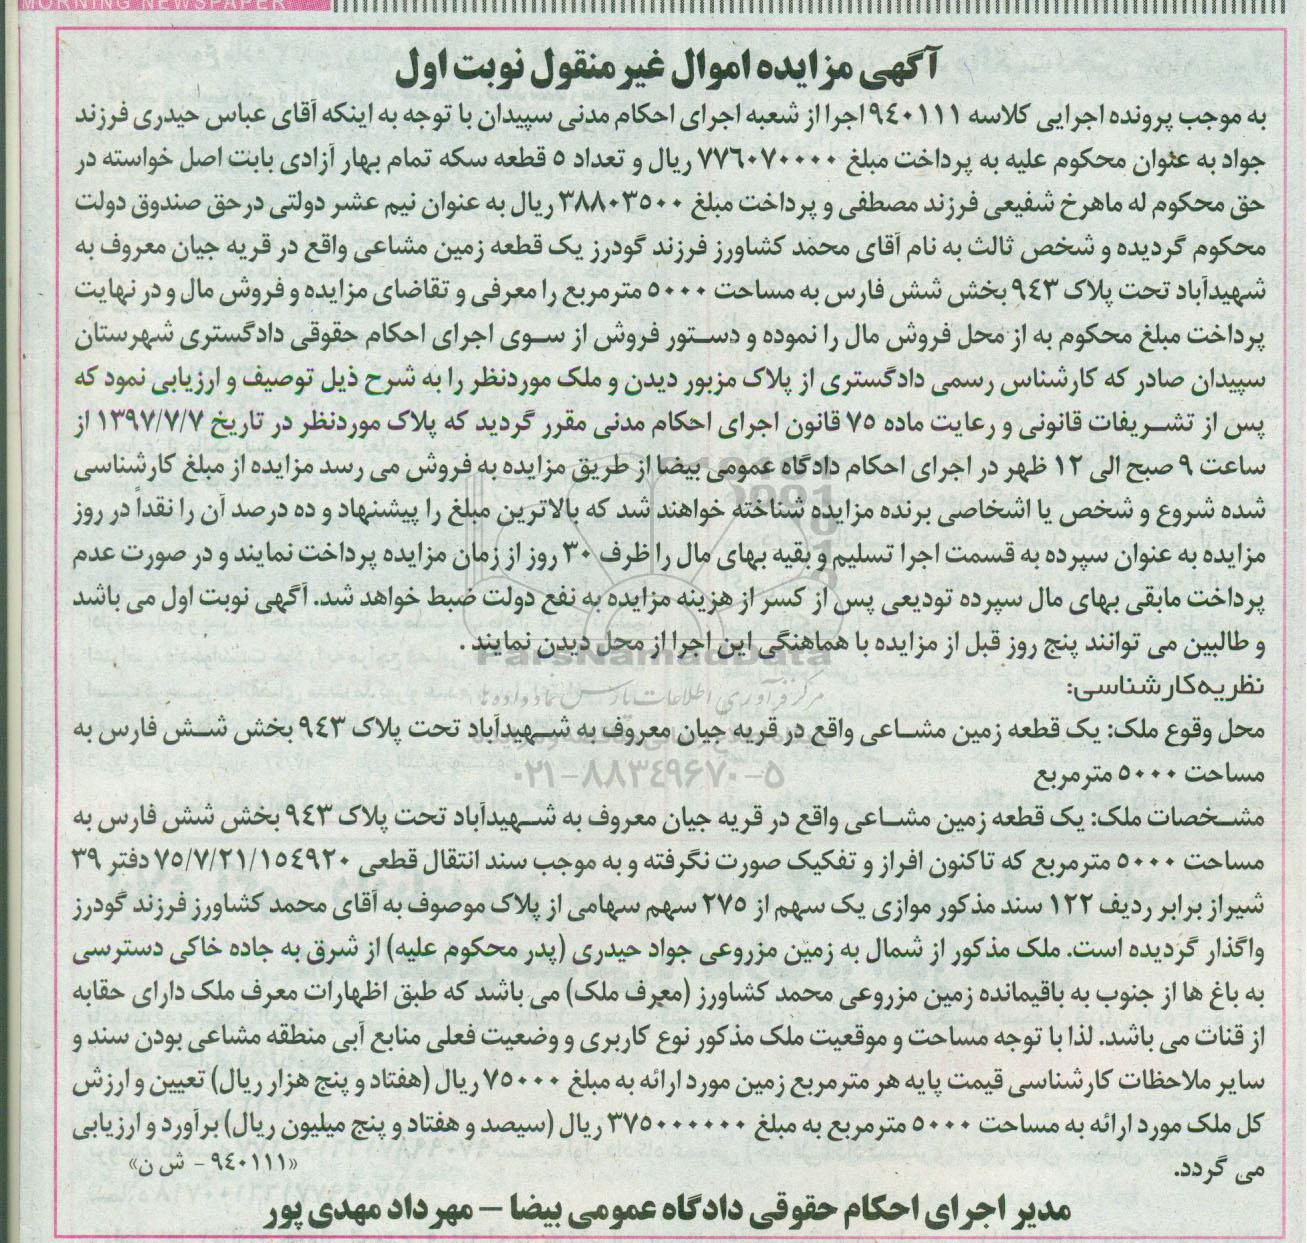 MORNING NEWSPAPER
آگهی مزایده اموال غیر منقول نوبت اول
به موجب پرونده اجرایی کلاسه ۹٤۰۱۱۱ اجرا از شعبه اجرای احکام مدنی سپیدان با توجه به اینکه آقای عباس حیدری فرزند
جواد به عنوان محکوم علیه به پرداخت مبلغ ۷۷٦۰۷۰۰۰۰ ریال و تعداد ٥ قطعه سکه تمام بهار آزادی بابت اصل خواسته در
حق محکوم له ماهرخ شفیعی فرزند مصطفی و پرداخت مبلغ ۳۸۸۰۳٥۰۰ ریال به عنوان نیم عشر دولتی درحق صندوق دولت
محکوم گردیده و شخص ثالث به نام آقای محمد کشاورز فرزند گودرز یک قطعه زمین مشاعی واقع در قریه جیان معروف به
شهیدآباد تحت پلاک ۹٤۳ بخش شش فارس به مساحت ٥۰۰۰ مترمربع را معرفی و تقاضای مزایده و فروش مال و در نهایت
پرداخت مبلغ محکوم به از محل فروش مال را نموده و دستور فروش از سوی اجرای احکام حقوقی دادگستری شهرستان
سپیدان صادر که کارشناس رسمی دادگستری از پلاک مزبور دیدن و ملک موردنظر را به شرح ذیل توصیف و ارزیابی نمود که
پس از تشریفات قانونی و رعایت ماده ۷٥ قانون اجرای احکام مدنی مقرر گردید که پلاک موردنظر در تاریخ ۱۳۹۷/۷/۷ از
ساعت ۹ صبح الی ۱۲ ظهر در اجرای احکام دادگاه عمومی بیضا از طریق مزایده به فروش می رسد مزایده از مبلغ کارشناسی
شده شروع و شخص یا اشخاصی برنده مزایده شناخته خواهند شد که بالاترین مبلغ را پیشنهاد و ده درصد آن را نقداً در روز
مزایده به عنوان سپرده به قسمت اجرا تسلیم و بقیه بهای مال را ظرف ۳۰ روز از زمان مزایده پرداخت نمایند و در صورت عدم
پرداخت مابقی بهای مال سپرده تودیعی پس از کسر از هزینه مزایده به نفع دولت ضبط خواهد شد. آگهی نوبت اول می باشد
و طالبین می توانند پنج روز قبل از مزایده با هماهنگی این اجرا از محل دیدن نمایند .
ParsNamadData
نظریه کارشناسی:
مرکز فرآوری اطلاعات پارس نماد داده ها
محل وقوع ملک: یک قطعه زمین مشاعی واقع در قریه جیان معروف به شهیدآباد تحت پلاک ۹٤۳ بخش شش فارس به
مساحت ٥۰۰۰ مترمربع
۰۲۱-۸۸۳٤۹٦۷۰-٥
مشخصات ملک: یک قطعه زمین مشاعی واقع در قریه جیان معروف به شهیدآباد تحت پلاک ۹٤۳ بخش شش فارس به
مساحت ٥۰۰۰ مترمربع که تاکنون افراز و تفکیک صورت نگرفته و به موجب سند انتقال قطعی ۷٥/۷/۲۱/۱٥٤۹۲۰ دفتر ۳۹
شیراز برابر ردیف ۱۲۲ سند مذکور موازی یک سهم از ۲۷٥ سهم سهامی از پلاک موصوف به آقای محمد کشاورز فرزند گودرز
واگذار گردیده است. ملک مذکور از شمال به زمین مزروعی جواد حیدری (پدر محکوم علیه) از شرق به جاده خاکی دسترسی
به باغ ها از جنوب به باقیمانده زمین مزروعی محمد کشاورز (معرف ملک) می باشد که طبق اظهارات معرف ملک دارای حقابه
از قنات می باشد. لذا با توجه مساحت و موقعیت ملک مذکور نوع کاربری و وضعیت فعلی منابع آبی منطقه مشاعی بودن سند و
سایر ملاحظات کارشناسی قیمت پایه هر مترمربع زمین مورد ارائه به مبلغ ۷٥۰۰۰ ریال (هفتاد و پنج هزار ریال) تعیین و ارزش
کل ملک مورد ارائه به مساحت ٥۰۰۰ مترمربع به مبلغ ۳۷٥۰۰۰۰۰۰ ریال (سیصد و هفتاد و پنج میلیون ریال) برآورد و ارزیابی
می گردد.
«۹٤۰۱۱۱ - ش ن»
مدیر اجرای احکام حقوقی دادگاه عمومی بیضا – مهرداد مهدی پور